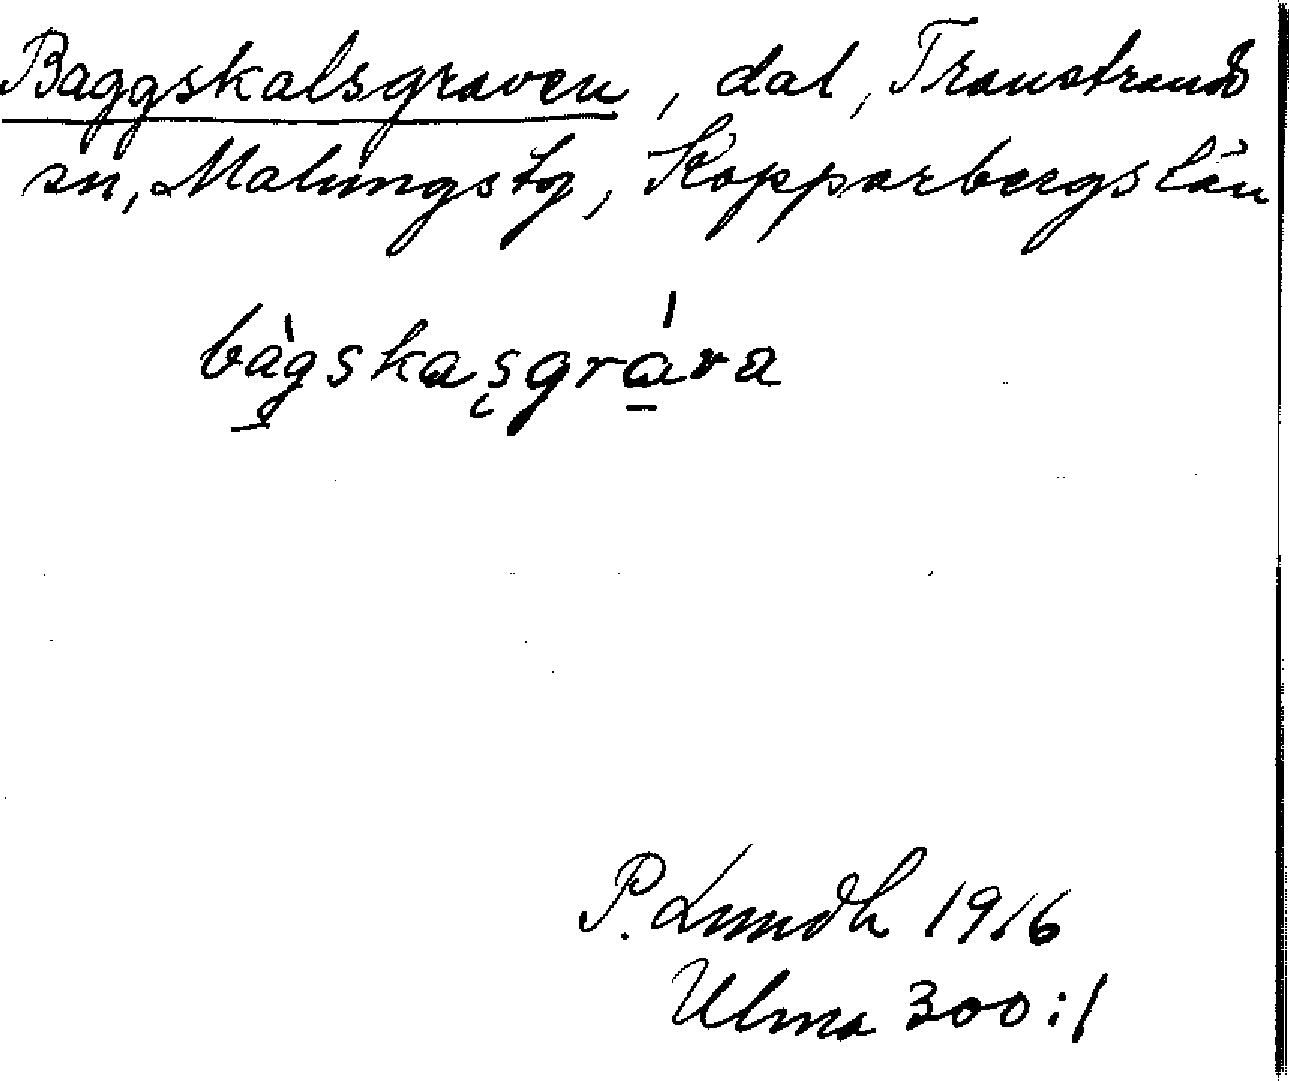 Baggskalsgraven, dal, Transtrands
sn, Malungs tg, Kopparbergs län
bàgskasgrava
P. Lundh 1916
Ulma 300:1